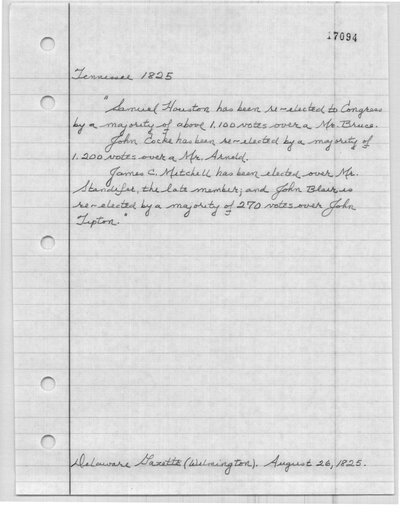 17094
Tennessee 1825
"Samuel Houston has been re-elected to Congress
by a majority of above 1,100 votes over a Mr. Bruce.
John Cocke has been re-elected by a majority of
1,200 votes over a Mr. Arnold.
James C. Mitchell has been elected over Mr.
Standifer, the late member; and John Blair is
re-elected by a majority of 270 votes over John
Tipton."
Delaware Gazette (Wilmington). August 26, 1825.